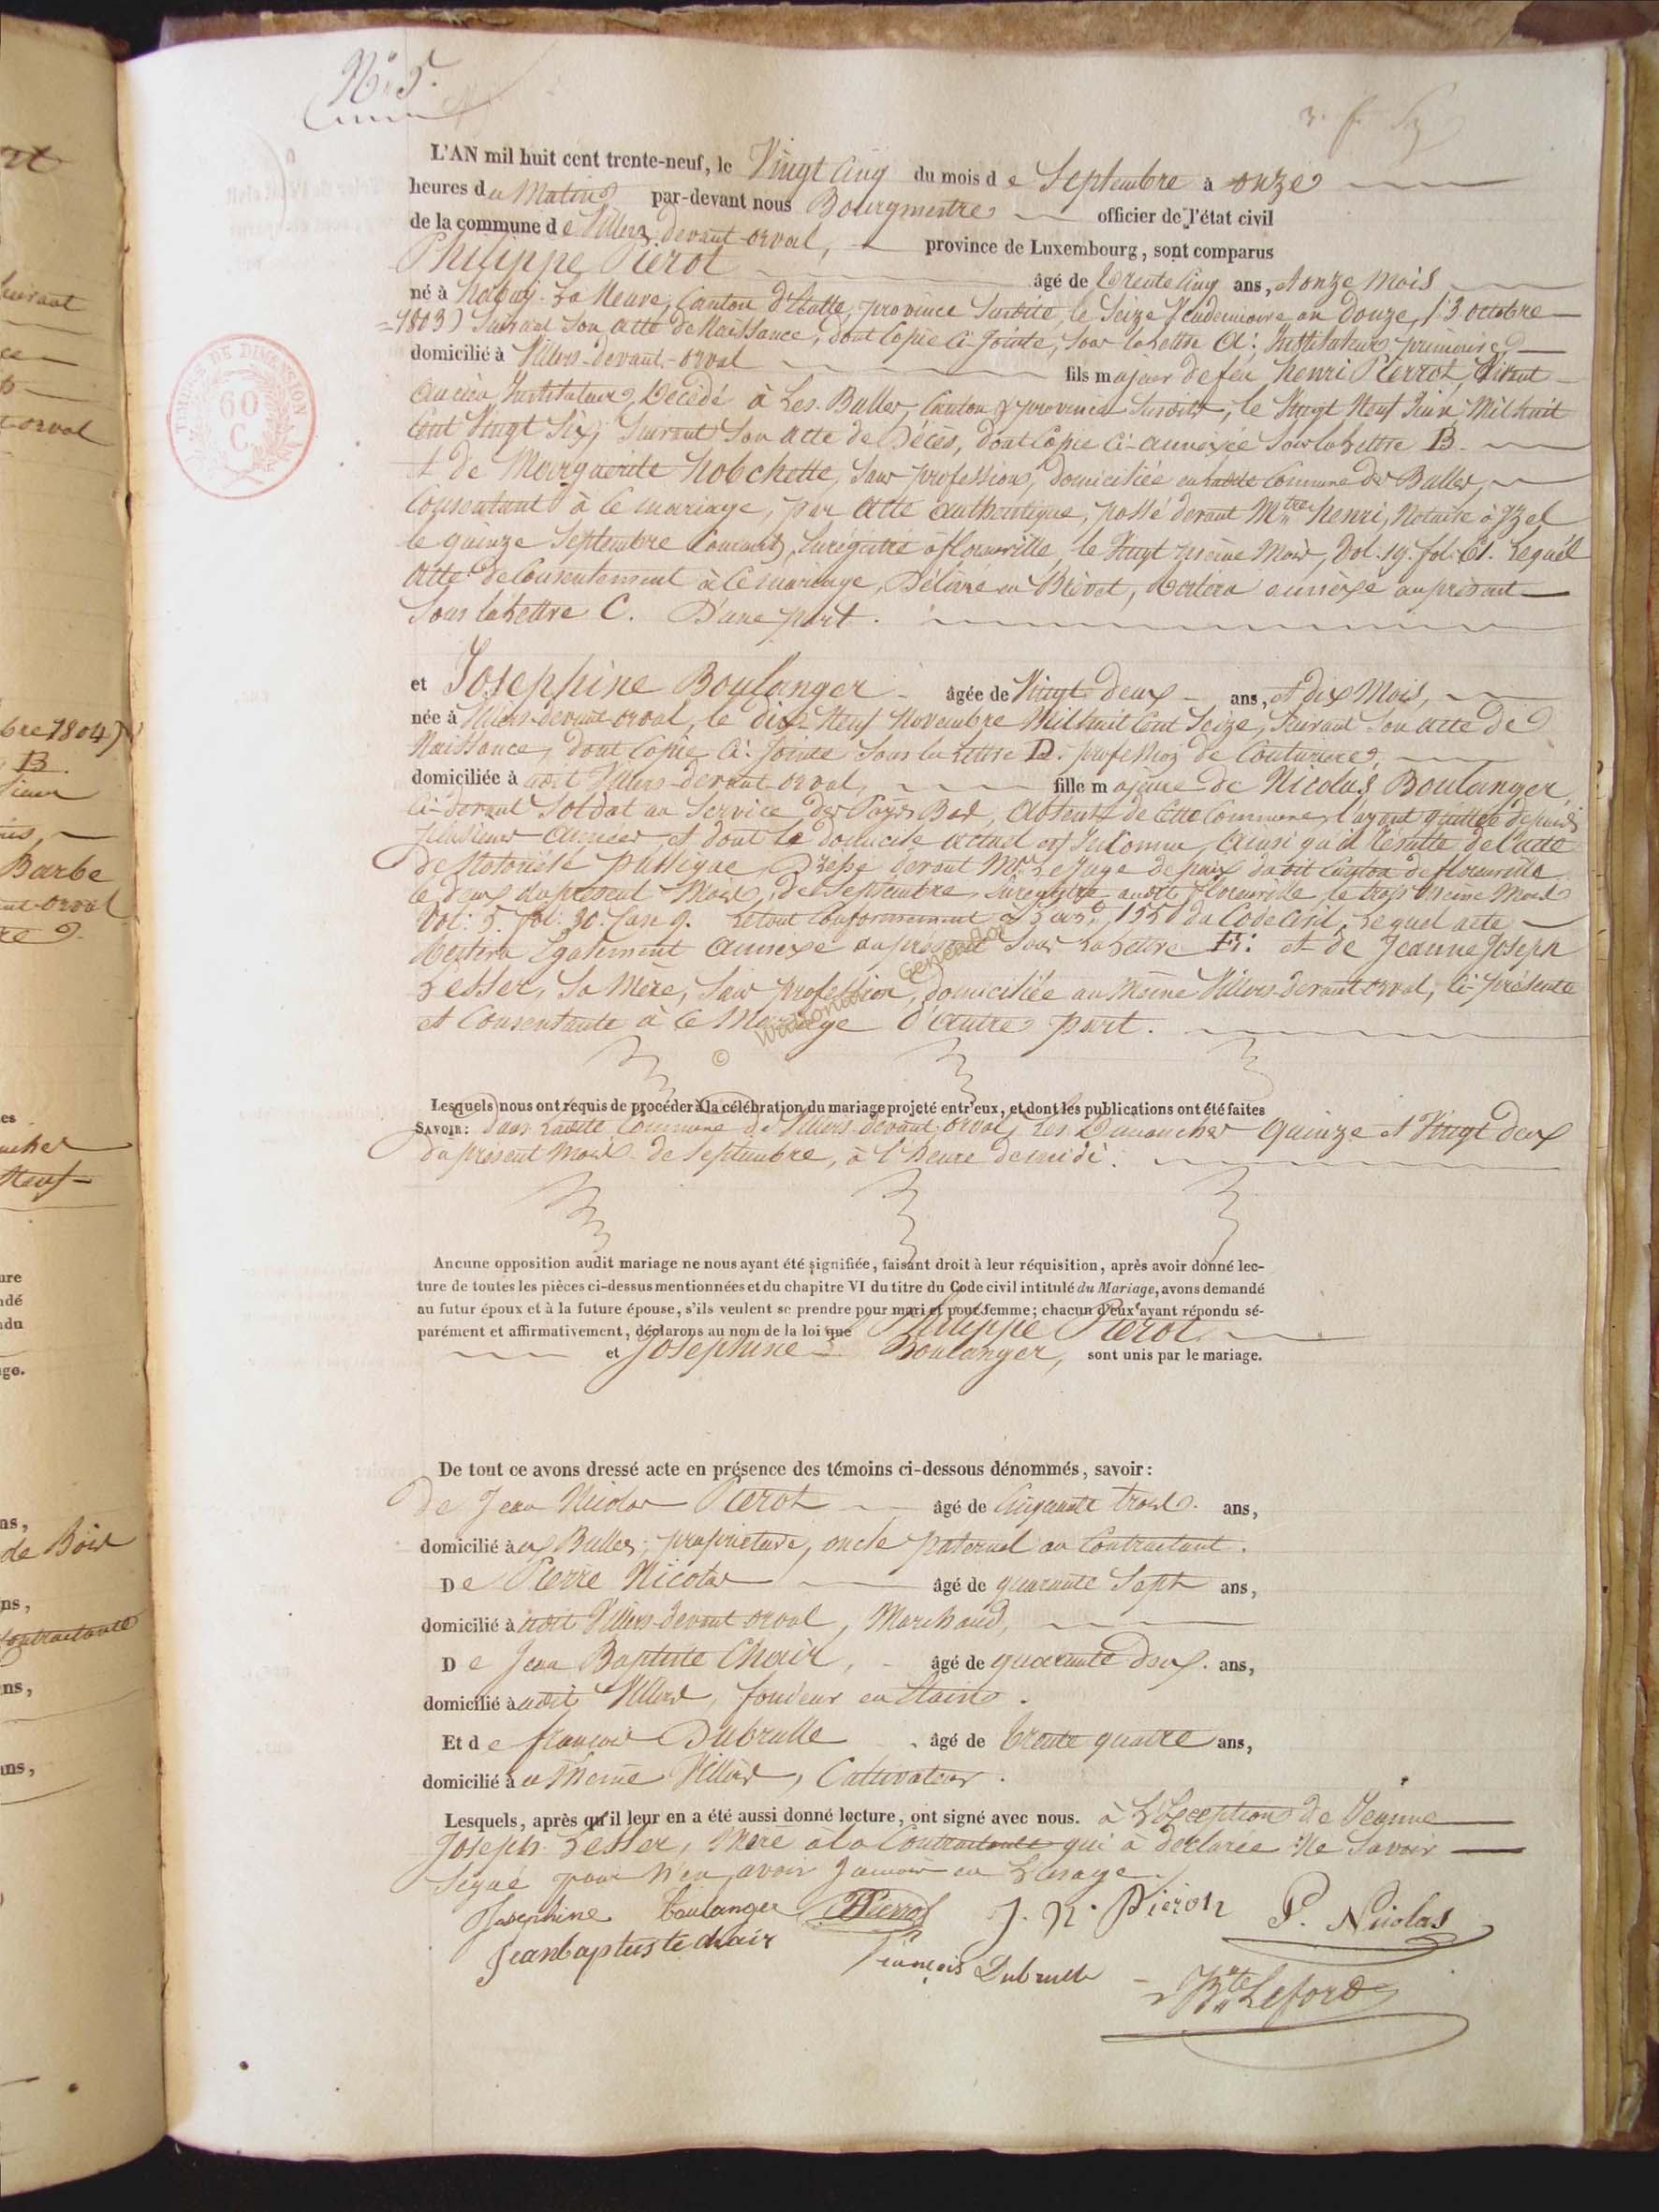 N° 5.
L'AN mil huit cent trente-neuf, le Vingt Cinq du mois de Septembre à onze
heures du Matin par-devant nous Bourgmestre officier de l'état civil
de la commune de Villers devant-orval, province de Luxembourg, sont comparus
Philippe Pierot âgé de trente Cinq ans, et onze Mois
né à habay-La Neuve, Canton d'Etalle, province Susdite, le Seize Vendemiaire an Douze, (3 octobre
=1803) Suivant Son Acte de Naissance, dont Copie Ci-Jointe, Sous la Lettre A: Instituteur primaire
domicilié à Villers-devant-orval fils majeur de feu henri Pierrot, Vivant
Ancien Instituteur, Décédé à Les-Bulles, Canton & province Susdits, le Vingt Neuf Juin Mil huit
Cent Vingt Six, Suivant Son Acte de Décès, dont Copie Ci-annexée Sous la Lettre B.
et de Marguerite hobchette, Sans profession, domiciliée en ladite Commune de Bulles,
Consentant à Ce mariage, par Acte Authentique, passé devant Mtre henri, Notaire à Izel
le quinze Septembre Courant, Enregistré à florenville, le Vingt même Mois, Vol. 19. fol. 61. Lequel
Acte de Consentement à Ce mariage, Délivré en Brevet, Restera annexé au présent
Sous la Lettre C. D'une part.
et Josephine Boulanger âgée de Vingt-deux ans, et dix Mois,
née à Villers-devant-orval, le dix Neuf Novembre Mil huit Cent Seize, Suivant Son Acte de
Naissance, dont Copie Ci-Jointe Sous la Lettre D. profession de Couturiere,
domiciliée à udit Villers-devant-orval, fille majeure de Nicolas Boulanger,
Ci-devant Soldat au Service des Pays Bas, Absent de Cette Commune, l'ayant quittée depuis
plusieurs Années, et dont le domicile actuel est Inconnu, Ainsi qu'il Résulte de l'acte
de Notoriété publique, Dressé devant Mr Le Juge de paix dudit Canton de florenville
le deux du présent Mois, de Septembre, Enregistré audit florenville le trois même Mois
Vol: 5. fol: 30. Case 9. Le tout Conformement à L'art. 155 du Code Civil, Lequel acte
Restera Egalement annexé au présent Sous La Lettre E: et de Jeanne Joseph
Lesser, Sa Mère, Sans profession, domiciliée au Même Villers-devant orval, Ci-présente
et Consentante à Ce Mariage D'autre part.
© Wallonia Geneaflor
Lesquels nous ont requis de procéder à la célébration du mariage projeté entr'eux, et dont les publications ont été faites
SAVOIR: Dans Ladite Commune de Villers-devant-orval, Les Dimanches Quinze et Vingt deux
du présent Mois de Septembre, à l'heure de midi.
Aucune opposition audit mariage ne nous ayant été signifiée, faisant droit à leur réquisition, après avoir donné lec-
ture de toutes les pièces ci-dessus mentionnées et du chapitre VI du titre du Code civil intitulé du Mariage, avons demandé
au futur époux et à la future épouse, s'ils veulent se prendre pour mari et pour femme; chacun d'eux ayant répondu sé-
parément et affirmativement, déclarons au nom de la loi que Philippe Pierot
et Josephine Boulanger, sont unis par le mariage.
De tout ce avons dressé acte en présence des témoins ci-dessous dénommés, savoir:
De Jean Nicolas Pierot âgé de Cinquante trois ans,
domicilié à ux Bulles, propriétaire, oncle paternel au Contractant.
De Pierre Nicolas âgé de quarante Sept ans,
domicilié à udit Villers-devant orval, Marchand,
De Jean Baptiste Chair, âgé de quarante deux ans,
domicilié à udit Villers, fondeur en Etains.
Et de francois Dubrulle âgé de trente quatre ans,
domicilié à u Même Villers, Cultivateur.
Lesquels, après qu'il leur en a été aussi donné lecture, ont signé avec nous. à L'Exception de Jeanne
Joseph Lesser, Mere à la Contractante qui à déclarée Ne Savoir
Signé pour N'en avoir Jamais eu L'usage.
Josephine Boulanger PPierrot J. N. Pieron P. Nicolas
Jeanbaptiste chair François Dubrulle
Bte Leford
TIMBRES DE DIMENSION
60
C.
bre 1804)
B.
Barbe
de Bois
Contractante